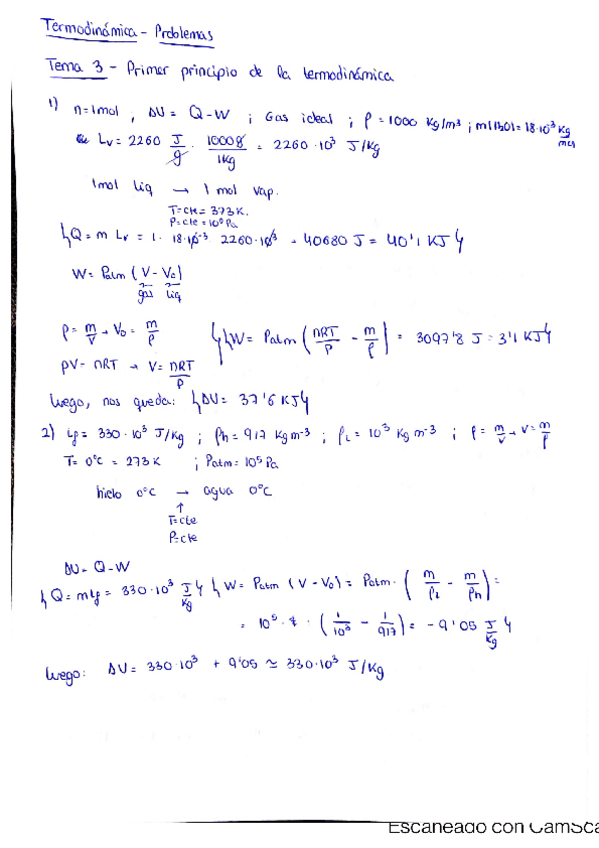 Termodinámica - Problemas
Tema 3 - Primer principio de la termodinámica
1) n=1mol, ΔU = Q-W ; Gas ideal ; ρ = 1000 Kg/m³ ; m(H2O) = 18·10⁻³ Kg/mol
Lv = 2260 J/g · 1000g/1Kg = 2260·10³ J/Kg
1mol liq → 1 mol vap.
T=cte = 373K.
P=cte=10⁵Pa
Q = m Lv = 1· 18·10⁻³ 2260·10³ = 40680 J = 40'1 KJ
W = Patm (V - V0)
gas liq
ρ = m/V → V0 = m/ρ
W = Patm (nRT/P - m/ρ) = 3097'8 J = 3'1 KJ
PV = nRT → V = nRT/P
luego, nos queda: ΔU = 37'6 KJ
2) Lf = 330·10³ J/Kg ; ρh = 917 Kg m⁻³ ; ρL = 10³ Kg m⁻³ ; ρ = m/V → V = m/ρ
T = 0°C = 273K ; Patm = 10⁵ Pa
hielo 0°C → agua 0°C
↑
T=cte
P=cte
ΔU = Q-W
Q = mLf = 330·10³ J/Kg W = Patm (V - V0) = Patm· (m/ρL - m/ρh) =
= 10⁵ · 1 · (1/10³ - 1/917) = -9'05 J/Kg
luego: ΔU = 330·10³ + 9'05 ≃ 330·10³ J/Kg
Escaneado con CamSca